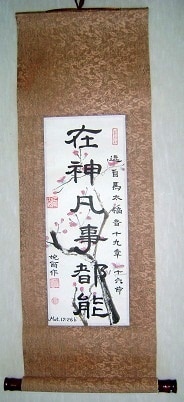 選自馬太福音十九章二十六節
在神凡事都能
Mat. 19:26 b